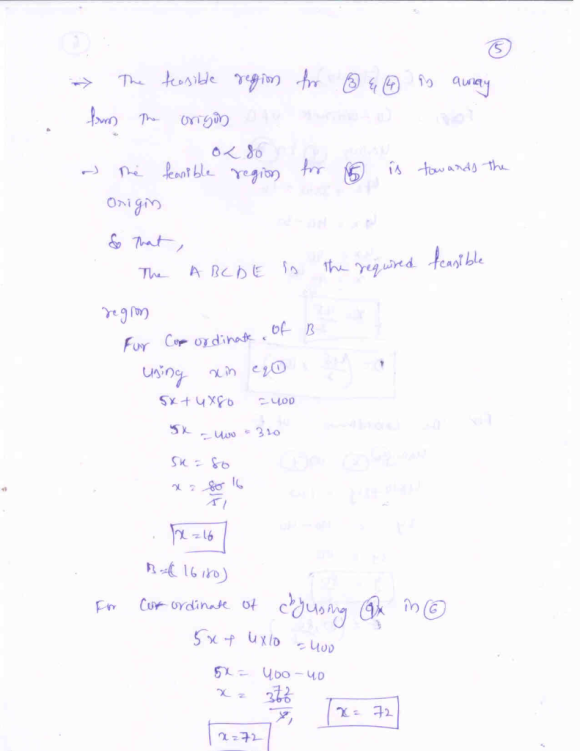 ⑤
→ The feasible region for ③ & ④ is away
from The origin
0 < 80
→ The feasible region for ⑤ is towards the
Origin
So That,
The A B C D E is the required feasible
region
For Co-ordinate. of B
Using x in eq①
5x + 4×80 = 400
5x = 400 - 320
5x = 80
x = 80/5 16
x = 16
B = (16,80)
For Co-ordinate of c by using in ⑥
5x + 4×10 = 400
5x = 400 - 40
x = 360 72 x = 72
x = 72